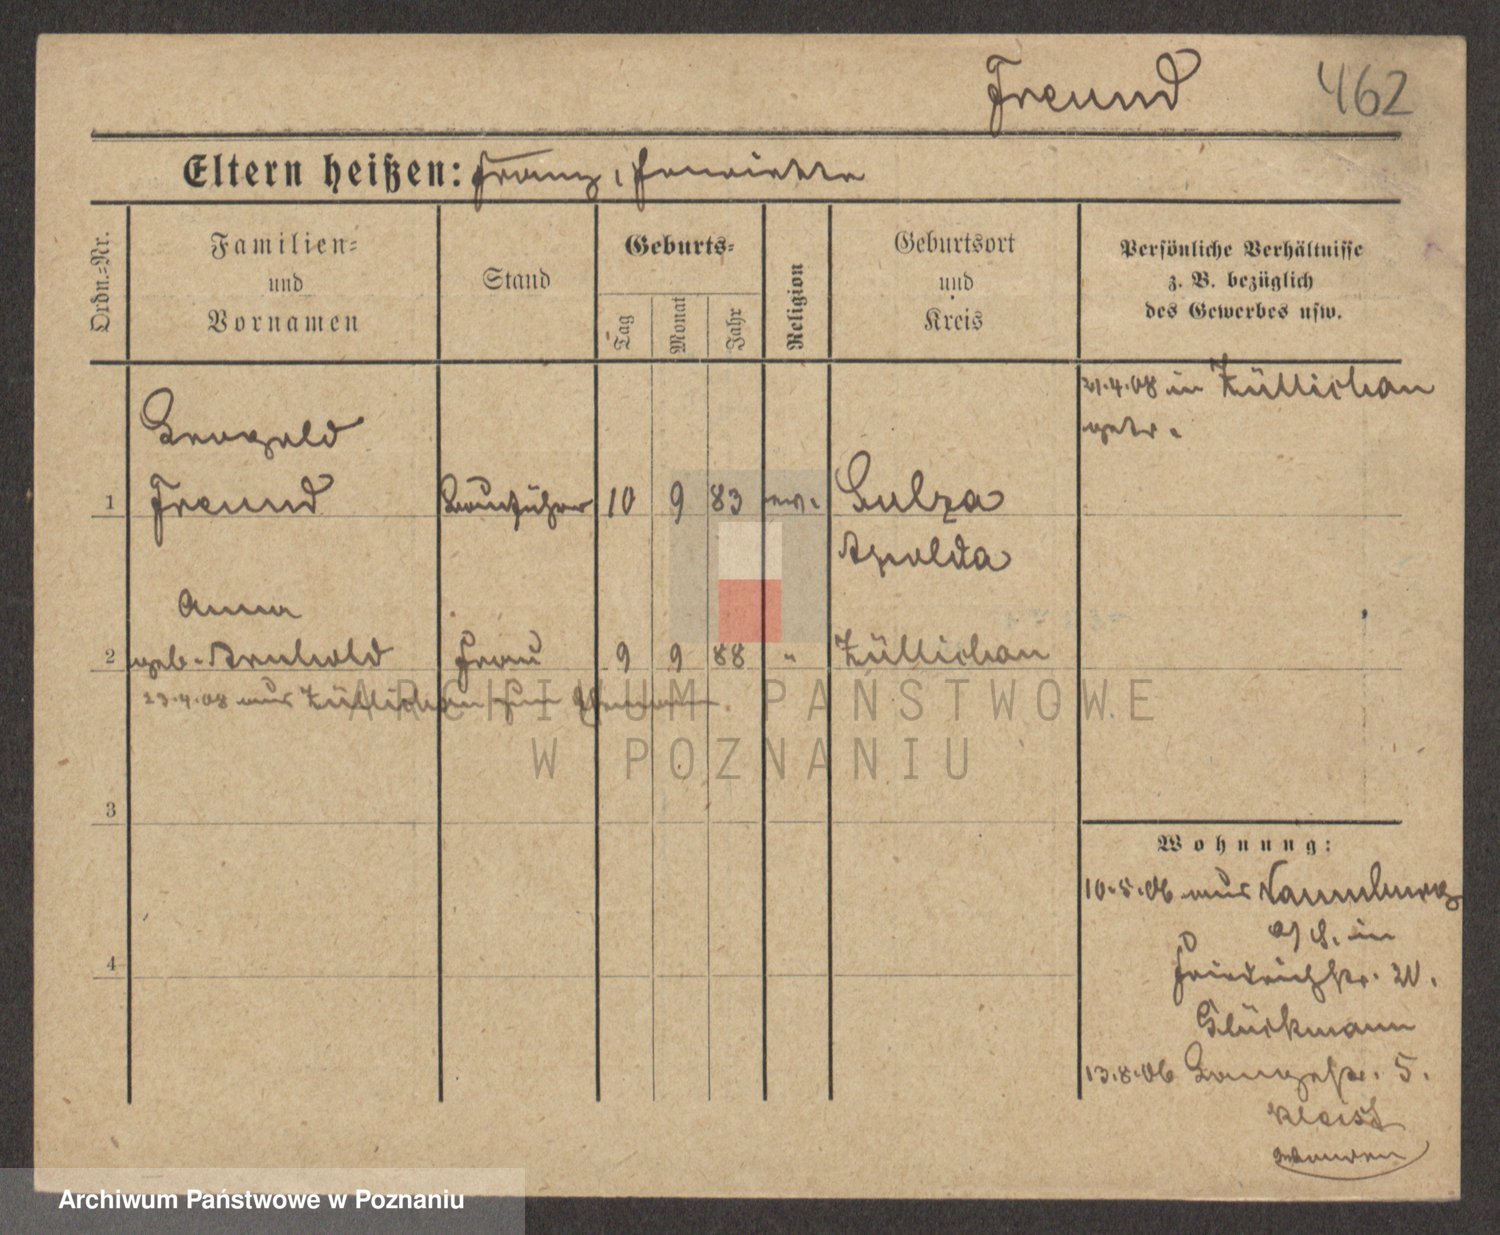 Freund 462
Eltern heißen: Franz, Henriette
Ordn.=Nr.
Familien=
und
Vornamen
Stand
Geburts=
Tag
Monat
Jahr
Religion
Geburtsort
und
Kreis
Persönliche Verhältnisse
z. B. bezüglich
des Gewerbes usw.
21.4.08 in Züllichau
getr.
Leopold
1 Freund Bauführer 10 9 83 ev. Sulza
Apolda
Anna
2 geb. Arnhold Frau 9 9 88 " Züllichau
23.4.08 aus Züllichau zum Ehemann.
3
4
Wohnung:
10.5.06 aus Naumburg
a/S. in
Friedrichstr. 20.
Glückmann
13.8.06 Langestr. 5.
Kleist
ARCHIWUM PAŃSTWOWE
W POZNANIU
Archiwum Państwowe w Poznaniu